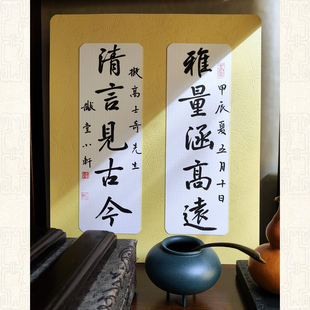 甲辰夏五月十日
雅量涵高遠
高士奇先生
清言見古今
堂小軒